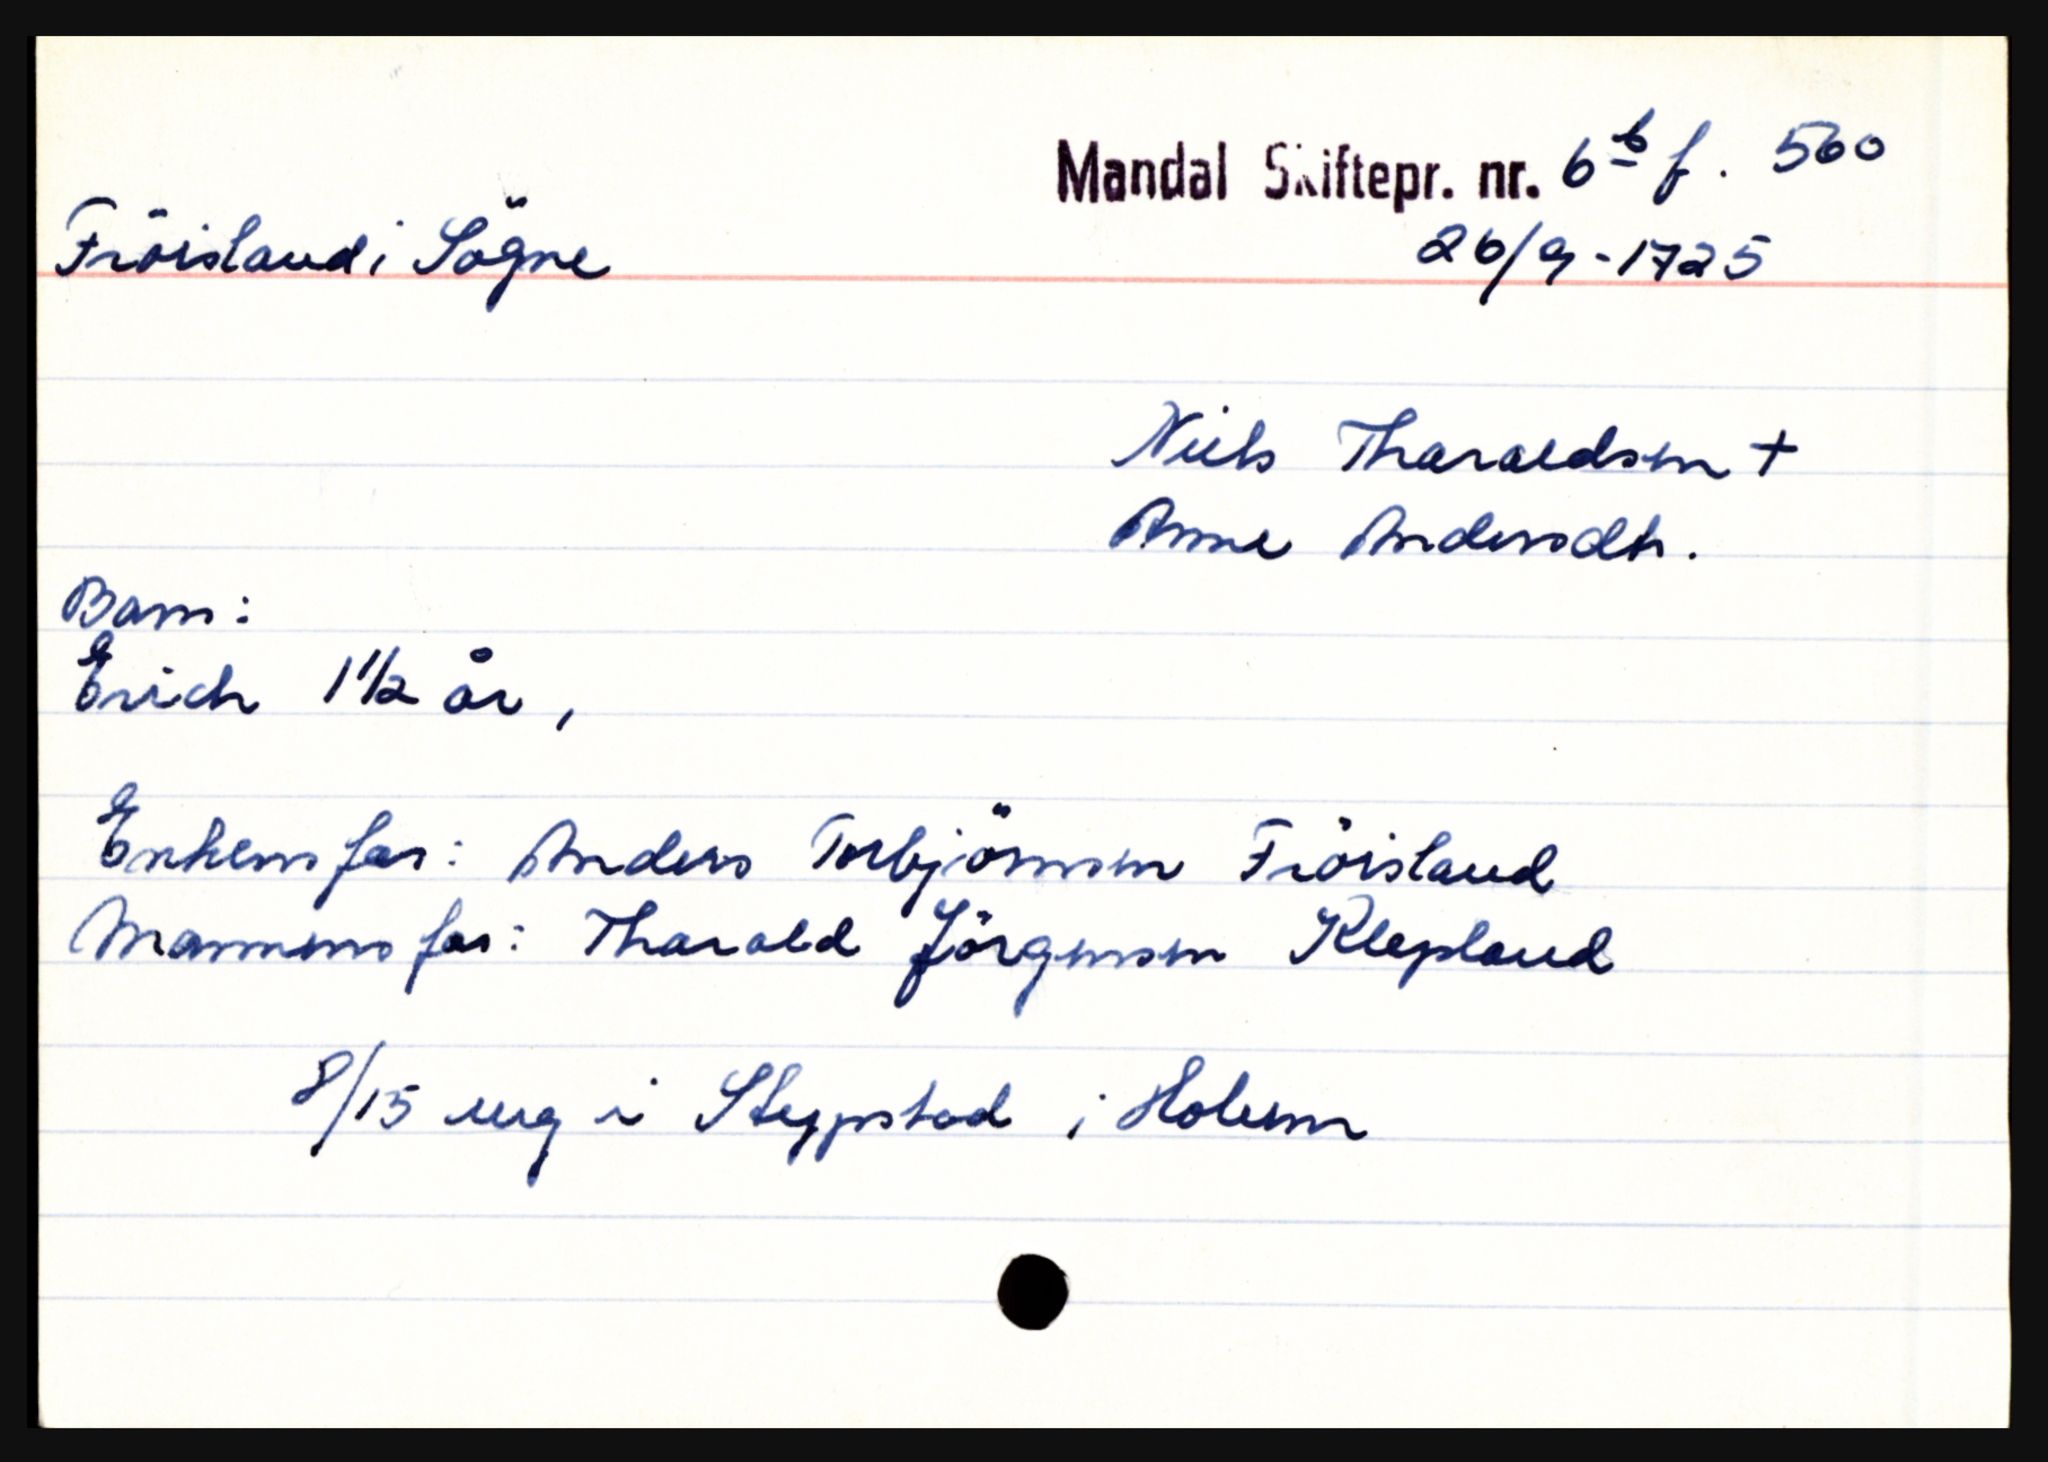 Mandal Skiftepr. nr. 6b f. 560
Fröisland i Sögne
26/9-1725
Niels Tharaldsen +
Anne Andersdtr.
Barn:
Erich 1 1/2 år,
Enkens far: Anders Torbjörnsen Fröisland
Mannens far: Tharald Jörgensen Klepland
8/15 eng i Steppstad i Holum